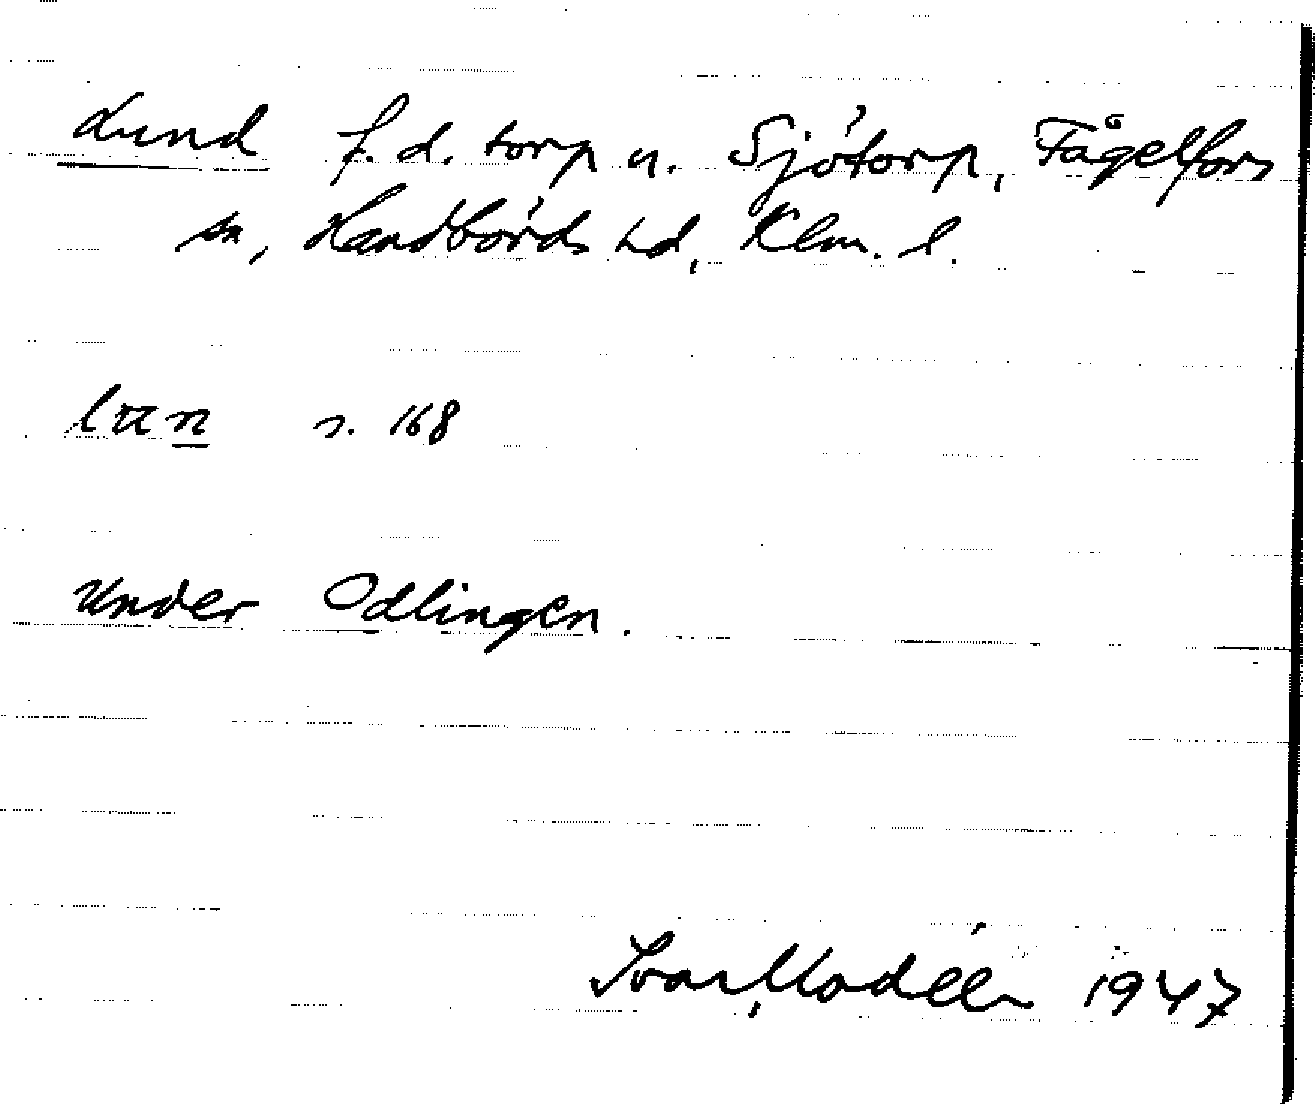 Lund f. d. torp u. Sjötorp, Fågelfors
sn, Handbörds hd, Klm. l.
lun s. 168
Under Odlingen.
Ivar Modéer 1947